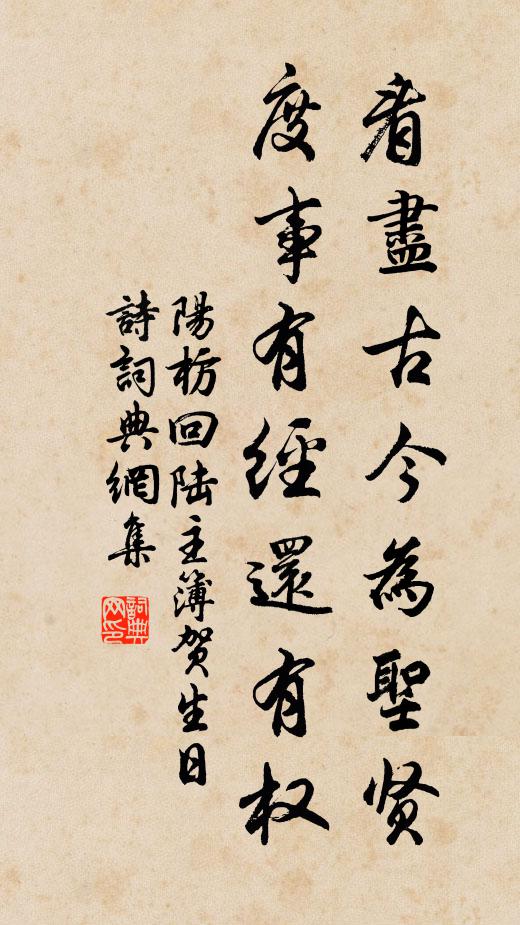 看盡古今為聖贤
度事有經還有权
陽枋回陆主簿贺生日
詩詞典網集
詞典网印